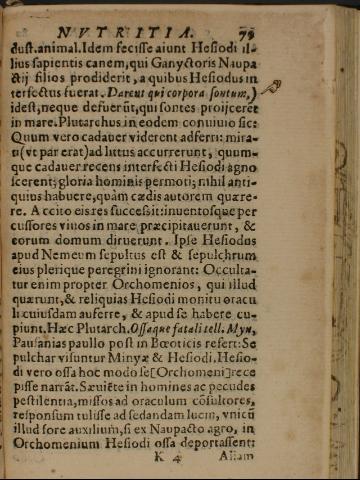 NVTRITIA. 79
dust.animal.Idem fecisse aiunt Hesiodi il-
lius sapientis canem, qui Ganyctoris Naupa
ctij filios prodiderit, a quibus Hesiodus in
terfectus fuerat. Darent qui corpora fontum,)
idest, neque defuerūt, qui fontes proijceret
in mare. Plutarchus in eodem conuiuio sic:
Quum vero cadauer viderent adferri: mira-
ti (vt par erat) ad littus accurrerunt, quum-
que cadauer recens interfecti Hesiodi agno
scerent; gloria hominis permoti; nihil anti-
quius habuere, quàm cædis autorem quære-
re. Ac cito eis res successit: inuentosque per
cussores viuos in mare præcipitauerunt, &
eorum domum diruerunt. Ipse Hesiodus
apud Nemeum sepultus est & sepulchrum
eius plerique peregrini ignorant: Occulta-
tur enim propter Orchomenios, qui illud
quærunt, & reliquias Hesiodi monitu oracu
li cuiusdam auferre, & apud se habere cu-
piunt. Hæc Plutarch. Ossaque fatali tell. Myn,
Pausanias paullo post in Bœoticis refert: Se
pulchar visuntur Minyæ & Hesiodi. Hesio-
di vero ossa hoc modo se [Orchomeni] rece
pisse narrāt. Sæuiēte in homines ac pecudes
pestilentia, missos ad oraculum cōsultores,
responsum tulisse ad sedandam luem, vnicū
illud fore auxilium, si ex Naupacto agro, in
Orchomenium Hesiodi ossa deportassent:
K 4 Aliam